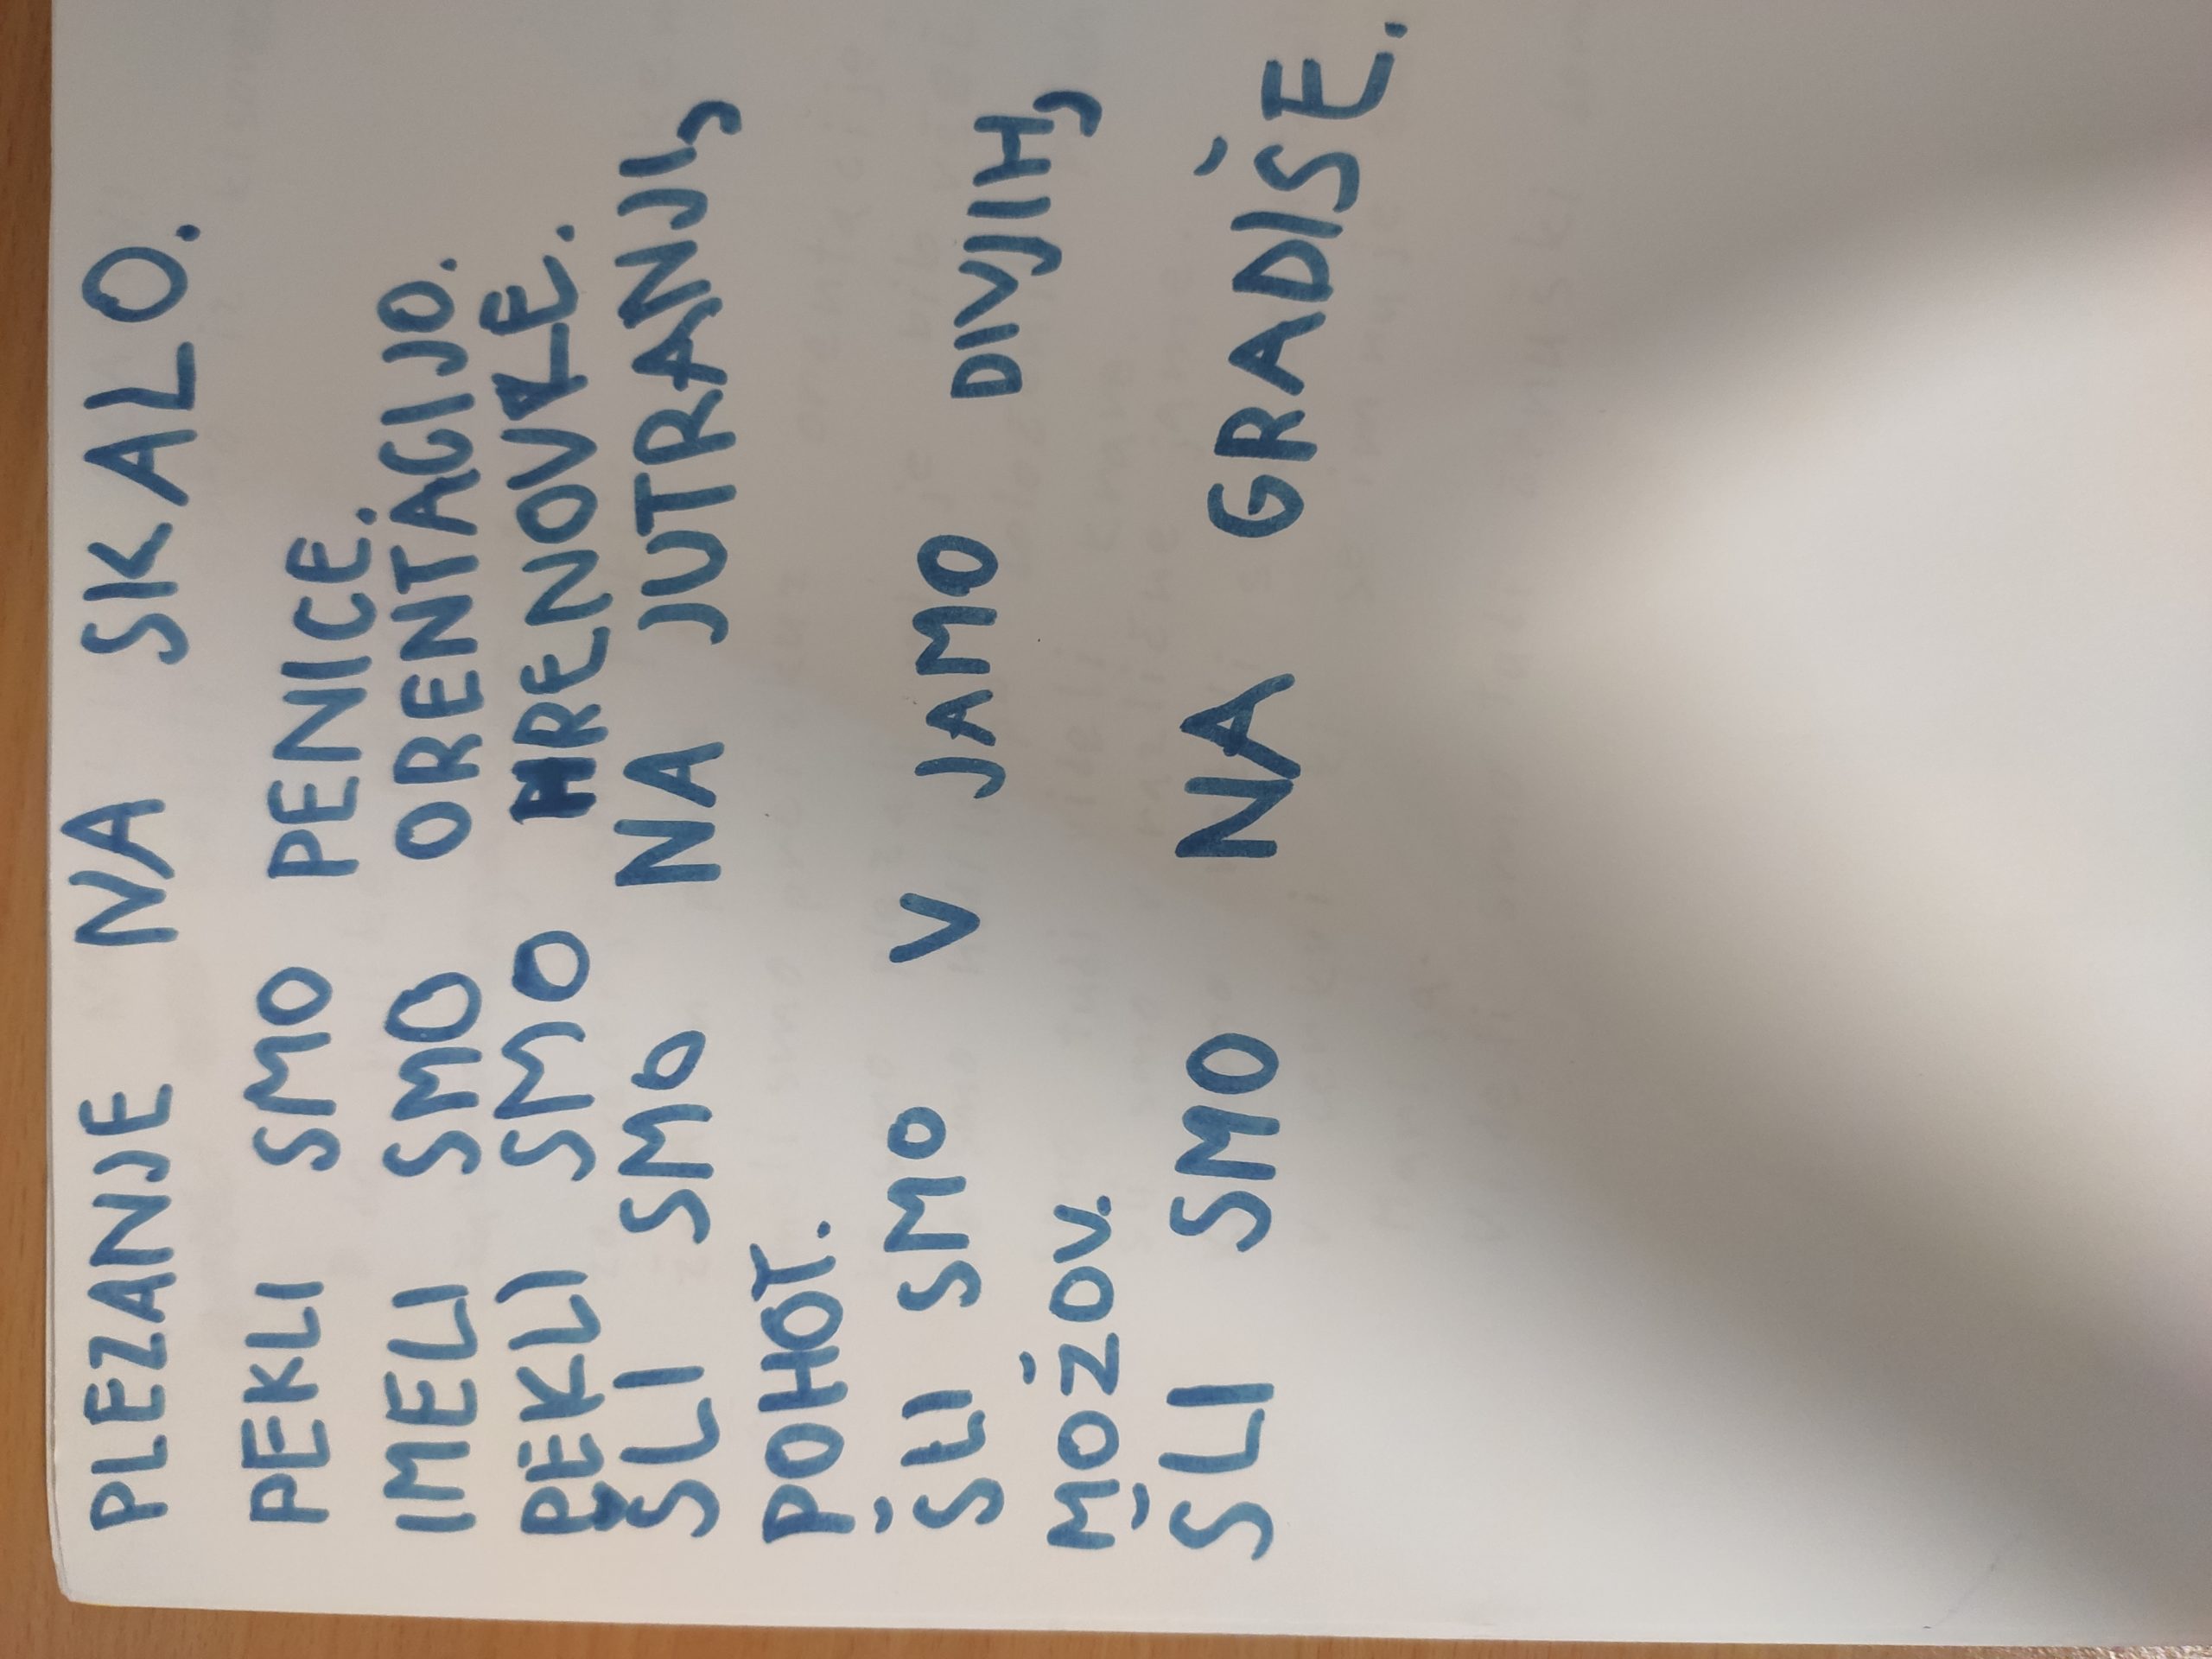 PLEZANJE NA SKALO.
PEKLI SMO PENICE.
IMELI SMO ORENTACIJO.
PEKLI SMO HRENOVLE.
ŠLI SMO NA JUTRANJI,
POHOT.
ŠLI SMO V JAMO DIVJIH,
MOŽOV.
ŠLI SMO NA GRADIŠE.